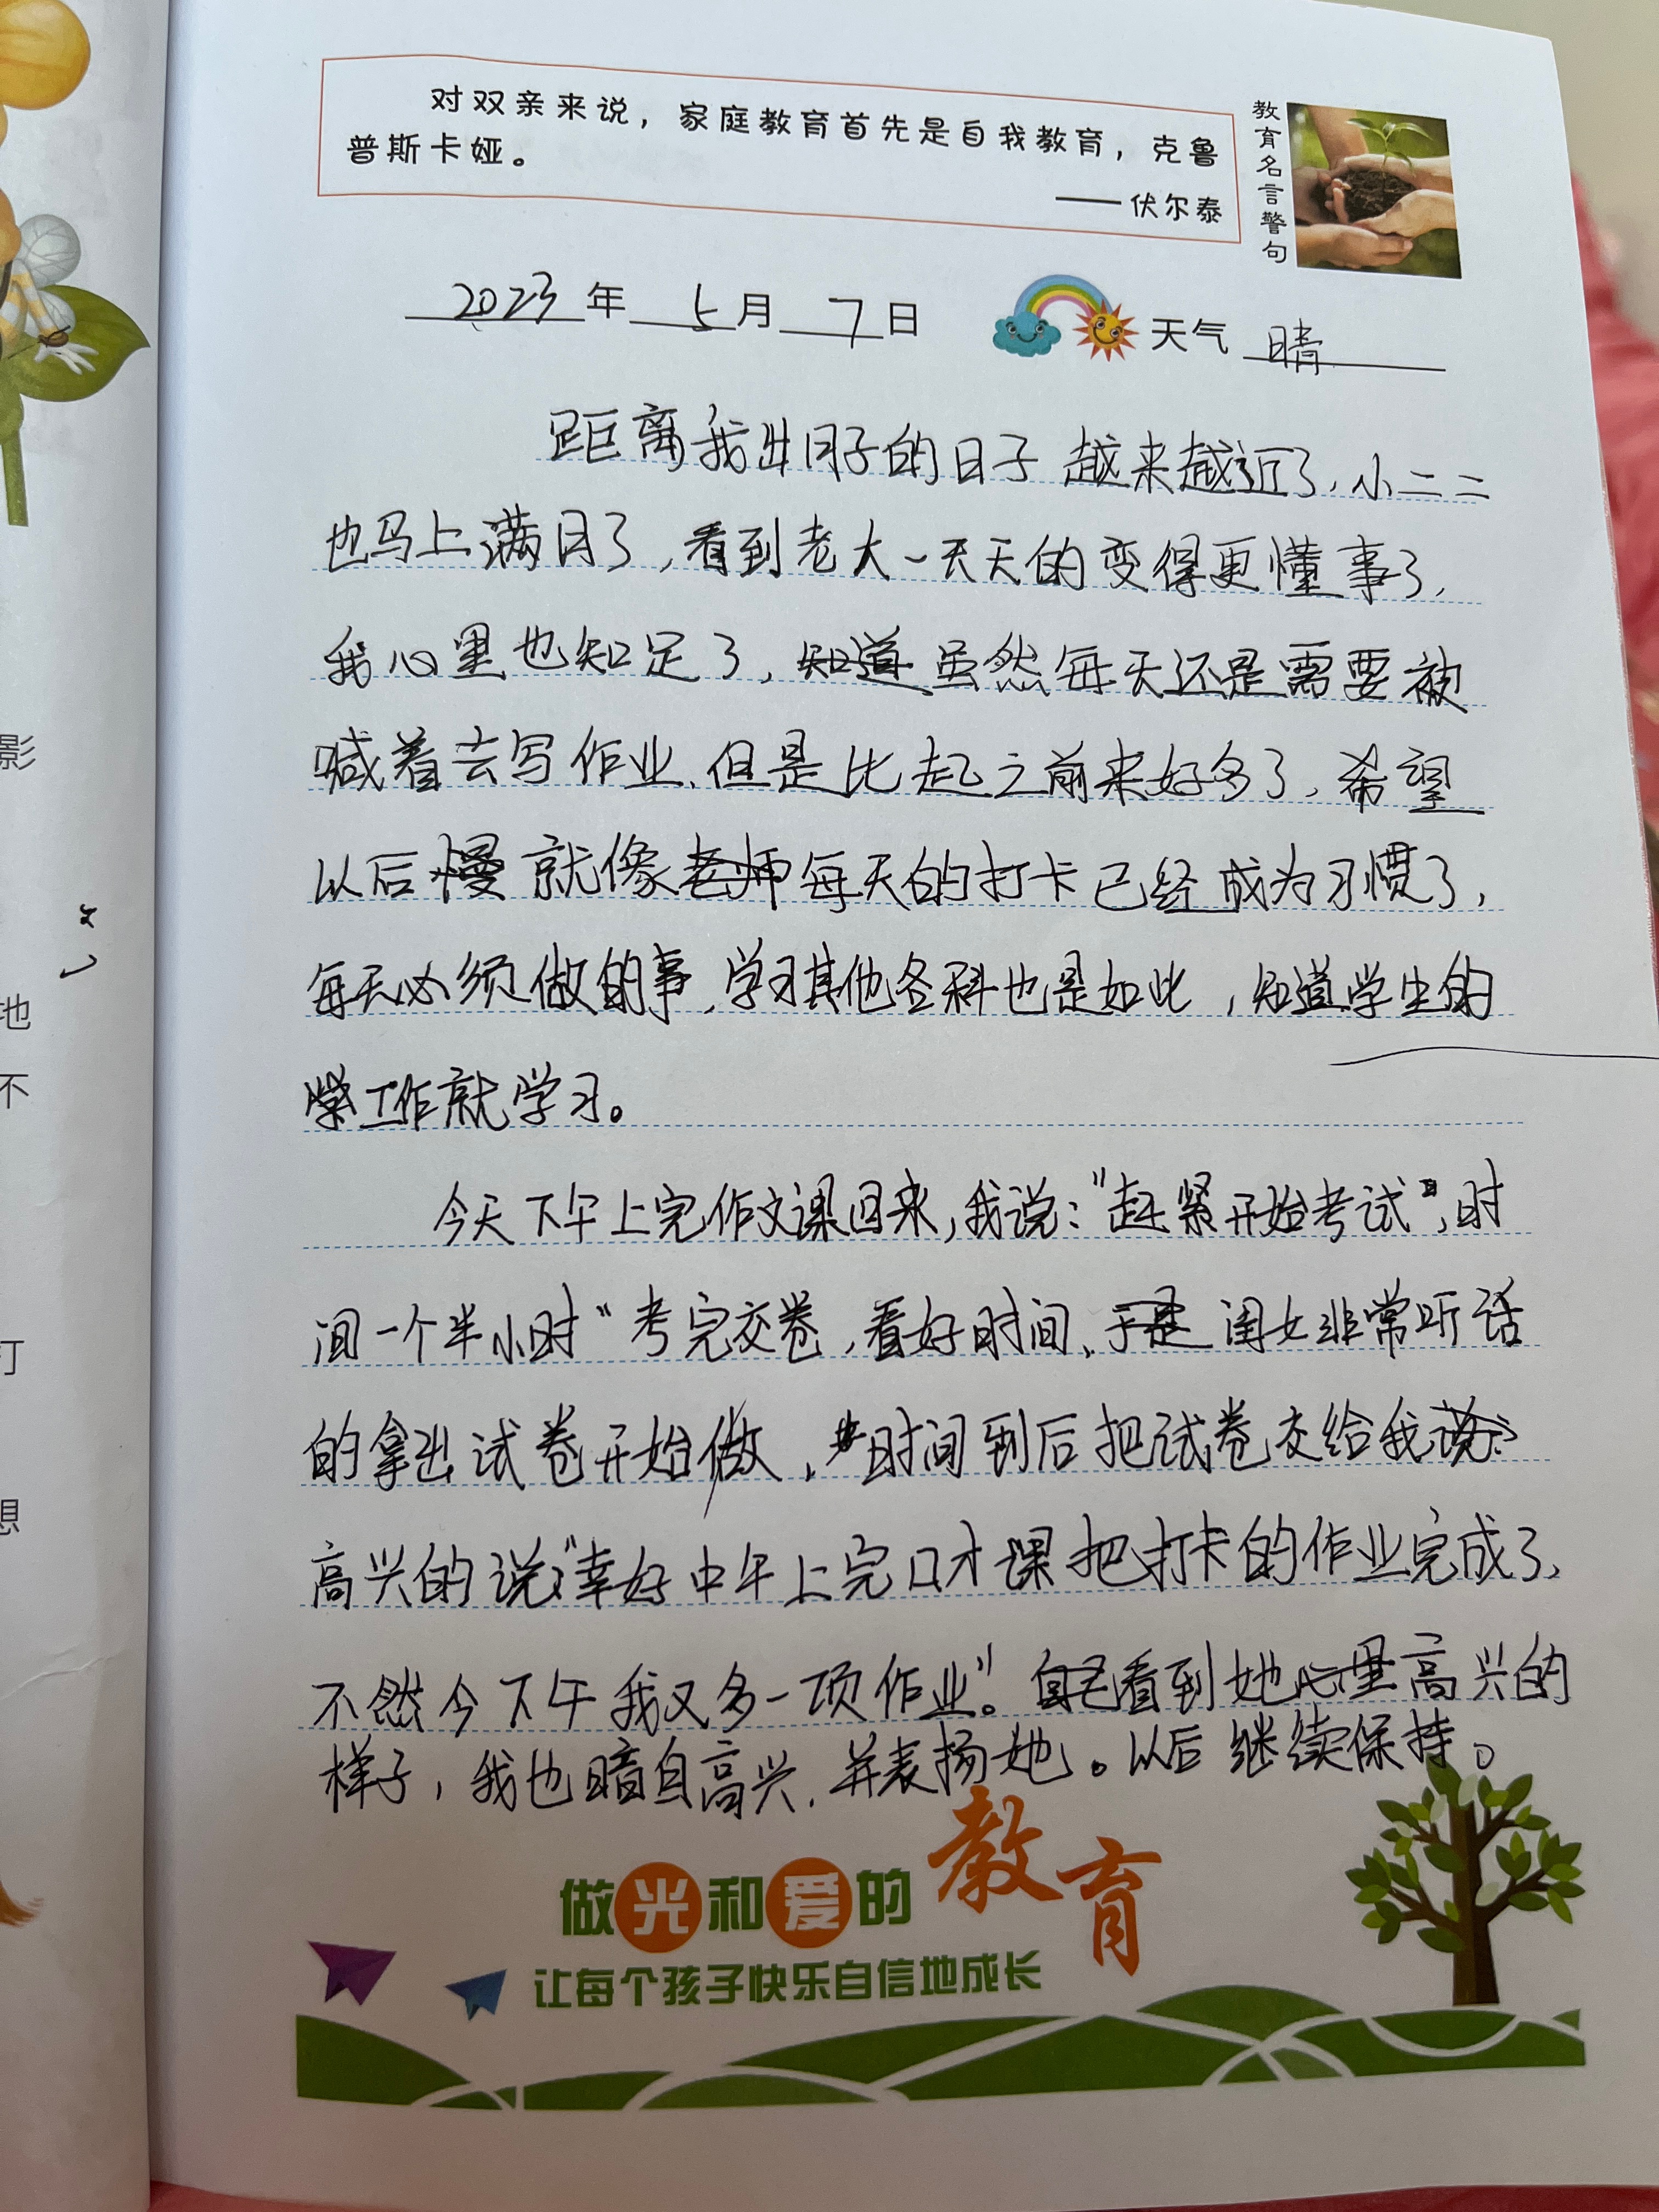 对双亲来说，家庭教育首先是自我教育，克鲁
普斯卡娅。
——伏尔泰
教育名言警句
2023年 5月 7日 天气 晴
距离我出月子的日子越来越近了，小二二
也马上满月了，看到老大一天天的变得更懂事了，
我心里也知足了，知道虽然每天还是需要被
喊着去写作业，但是比起之前来好多了，希望
以后慢就像老师每天的打卡已经成为习惯了，
每天必须做的事，学习其他各科也是如此，知道学生的
工作就学习。
今天下午上完作文课回来，我说："赶紧开始考试"，时
间一个半小时"考完交卷，看好时间，于是闺女非常听话
的拿出试卷开始做，时间到后把试卷交给我说：
高兴的说："幸好中午上完口才课把打卡的作业完成了，
不然今下午我又多一项作业"。看到她心里高兴的
样子，我也暗自高兴，并表扬她。以后继续保持。
做光和爱的教育
让每个孩子快乐自信地成长
影
地
不
打
想